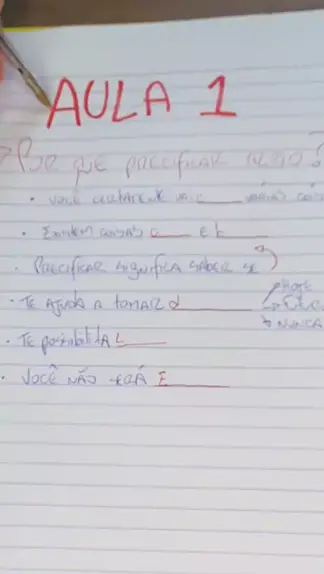 AULA 1
POR QUE PRECIFICAR ALGO?
• VOCÊ ___
• EXISTEM COISAS C___ E b___
• PRECIFICAR SIGNIFICA SABER SE
• TE AJUDA A TOMAR d___ HOJE
NUNCA
• TE possibilita L___
• VOCÊ NÃO TERÁ F___